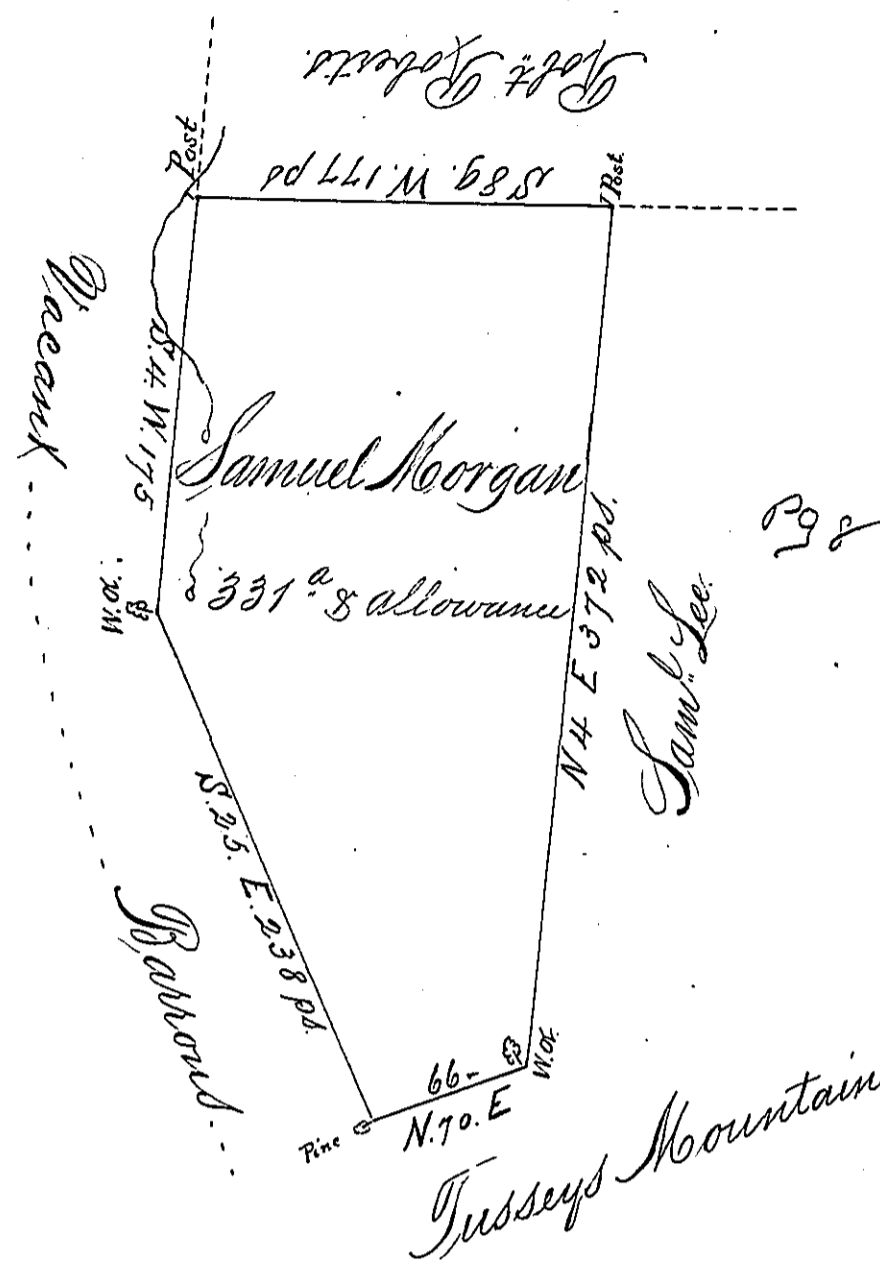 Robt. Roberts.
Post
S 89. W. 177 ps
Post.
Vacant
S. 4. W. 175
Samuel Morgan
331 a & allowance
N 4 E 372 ps.
Saml. Lee.
W.O.
S. 25. E. 238 ps.
Barrens
66
N. 70. E
W.O.
Pine
Tusseys Mountain